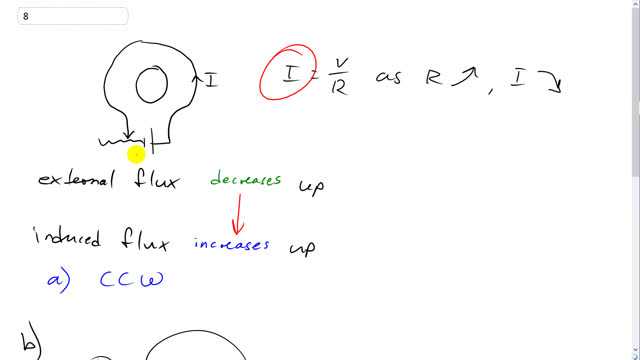 8
I
I = V/R as R ↗, I ↘
external flux decreases up
induced flux increases up
a) CCW
b)